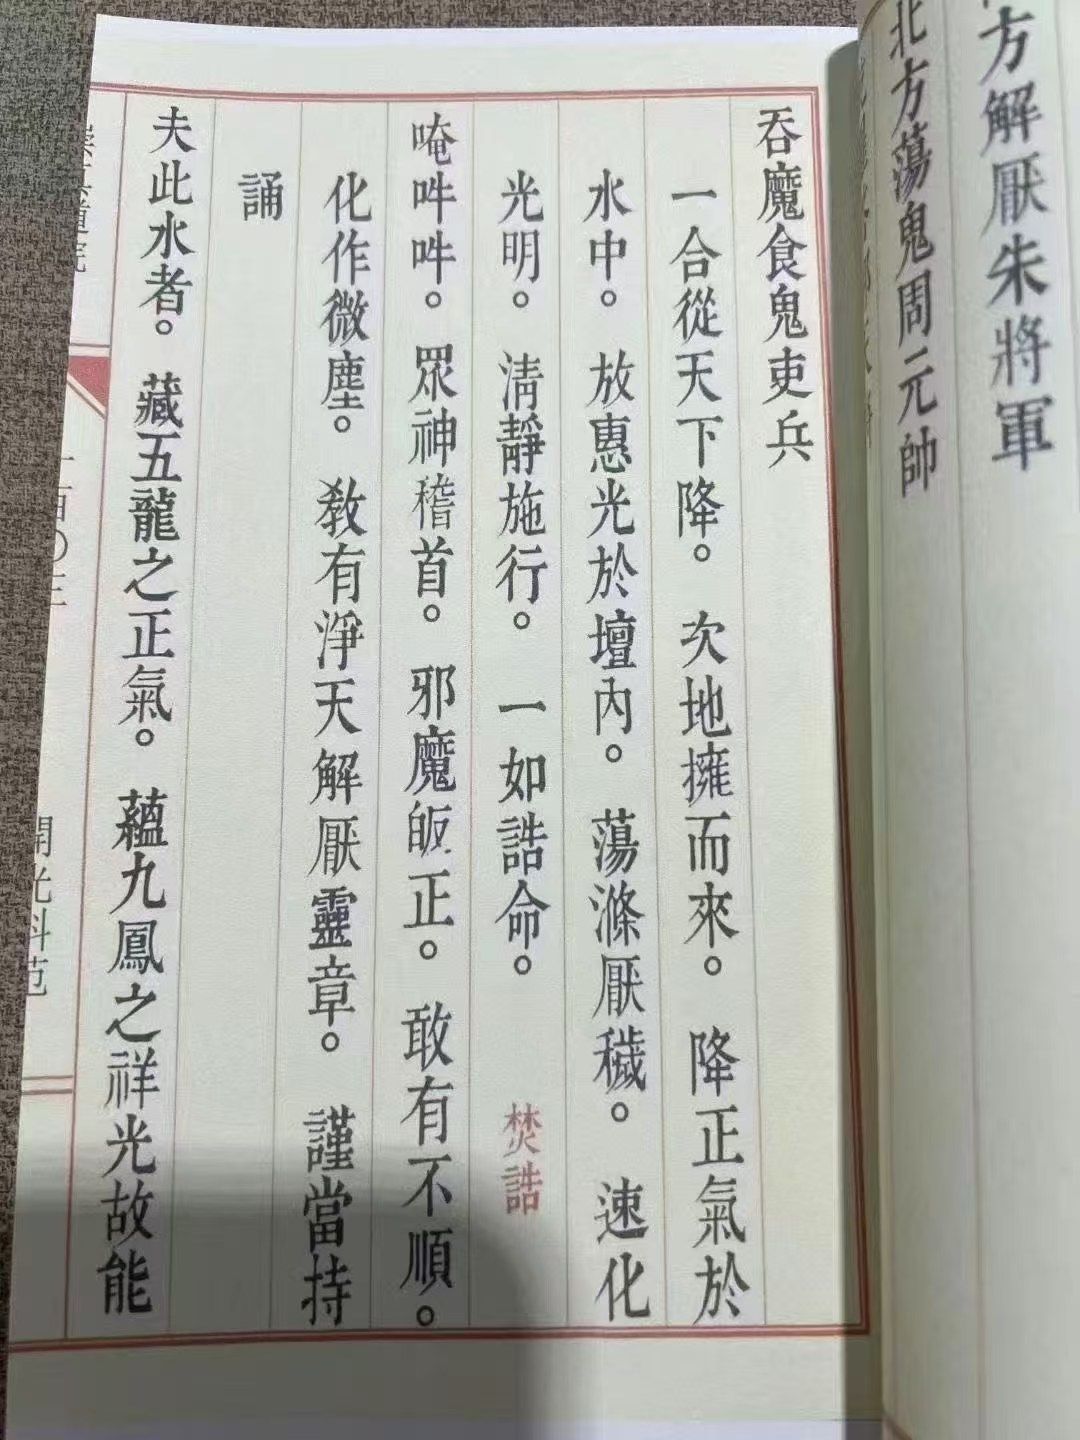 方解厭朱將軍
北方蕩鬼周元帥
吞魔食鬼吏兵
一合從天下降。次地擁而來。降正氣於
水中。放惠光於壇內。蕩滌厭穢。速化
光明。清靜施行。一如誥命。 焚誥
唵吽吽。眾神稽首。邪魔皈正。敢有不順。
化作微塵。敎有淨天解厭靈章。謹當持
誦
夫此水者。藏五龍之正氣。蘊九鳳之祥光故能
開光科范